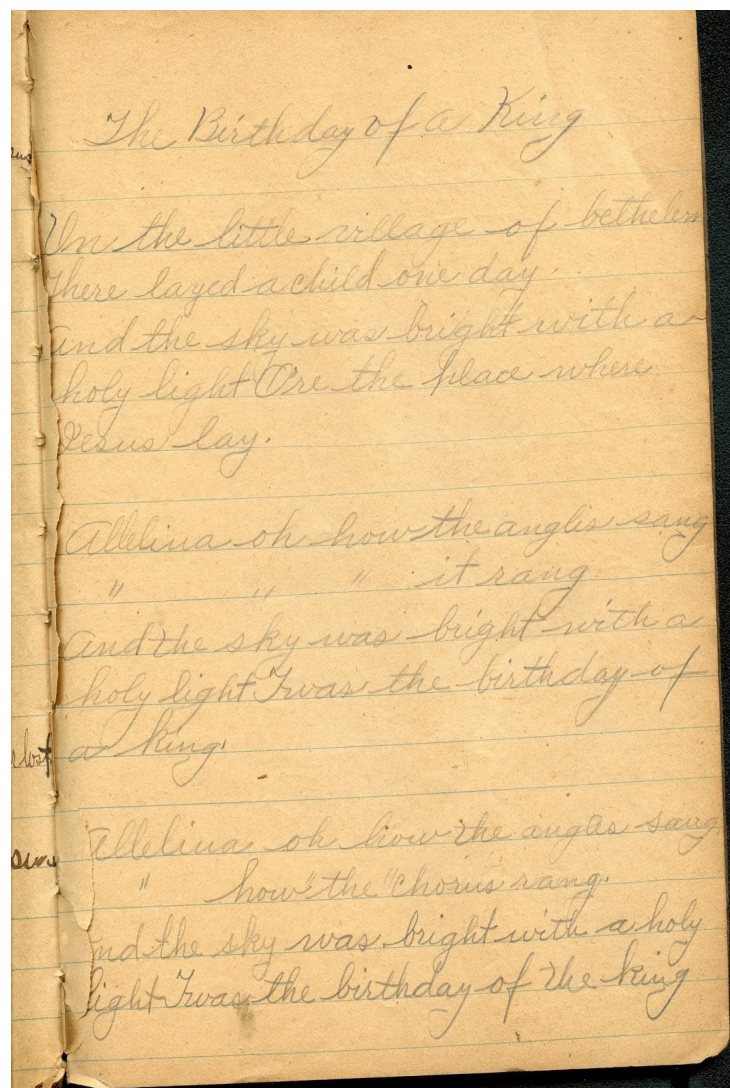 The Birthday of a King
In the little village of bethelem
There layed a child one day.
And the sky was bright with a
holy light O're the place where
Jesus lay.
Allelina oh how the anglis sang
" " " it rang
And the sky was bright with a
holy light Twas the birthday of
a king.
Allelina oh how the angles sang
" how " the " chorus rang.
And the sky was bright with a holy
light Twas the birthday of the king